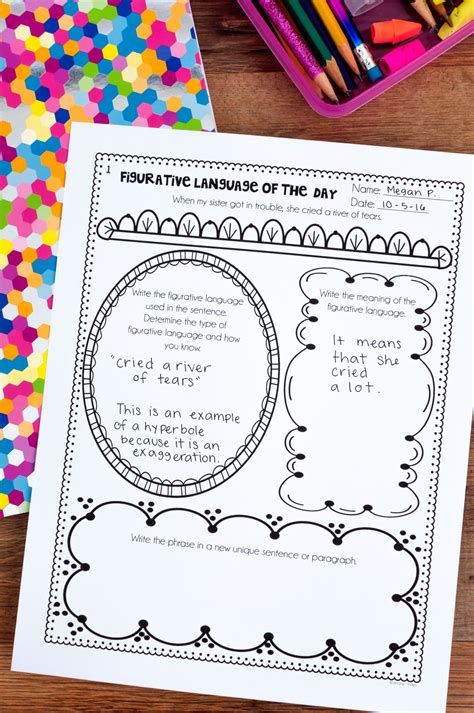 1
FIGURATIVE LANGUAGE OF THE DAY
Name: Megan P.
Date: 10-5-16
When my sister got in trouble, she cried a river of tears.
Write the figurative language
used in the sentence.
Determine the type of
figurative language and how
you know.
"cried a river
of tears"
This is an example
of a hyperbole
because it is an
exaggeration.
Write the meaning of the
figurative language.
It means
that she
cried
a lot.
Write the phrase in a new unique sentence or paragraph.